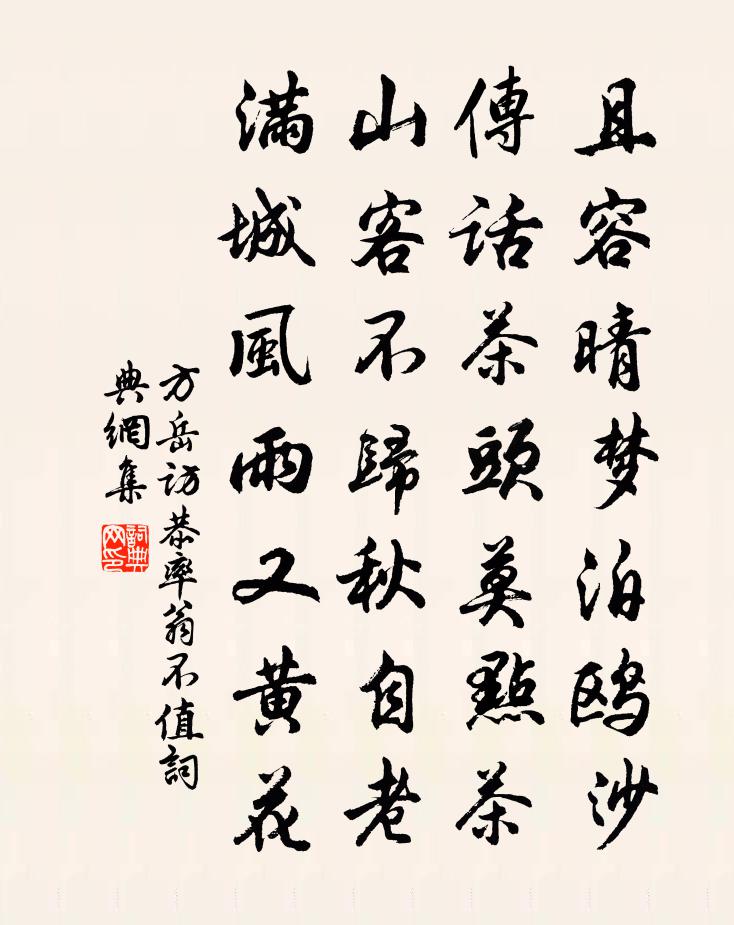 且容晴梦泊鸥沙
傳话茶頭莫點茶
山客不歸秋自老
滿城風雨又黄花
方岳访恭率翁不值詞
典網集
詞典
网印